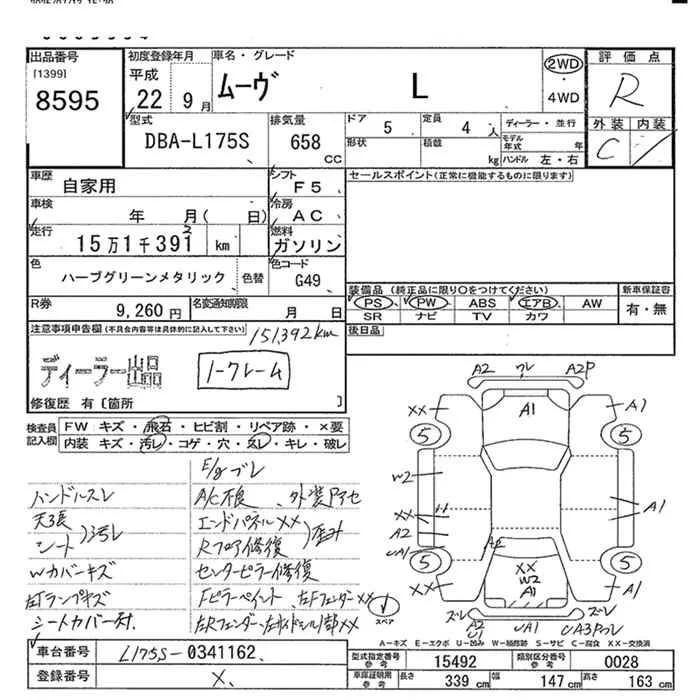 出品番号
[1399]
8595
初度登録年月
平成
22 9月
車名・グレード
ムーヴ L
2WD
・
4WD
評価点
R
外装 内装
C
型式
DBA-L175S
排気量
658
CC
ドア 5
定員 4 人
形状
積載 kg
ディーラー・並行
モデル年式 年
ハンドル 左・右
車歴
自家用
シフト
F5
セールスポイント(正常に機能するものに限ります)
車検
年 月( 日)
冷房
AC
走行
15万1千391 km
2
燃料
ガソリン
色
ハーブグリーンメタリック
色替
色コード
G49
装備品 (純正品に限り○をつけてください)
新車保証書
PS PW ABS エアB AW
SR ナビ TV カワ
有・無
R券
9,260円
名変通知期限
月 日
後日品
注意事項申告欄(不具合内容等は具体的に記入して下さい)
151,392km
ディーラー出品
ノークレーム
修復歴 有〔箇所 〕
検査員記入欄
FW キズ・飛石・ヒビ割・リペア跡・×要
内装 キズ・汚レ・コゲ・穴・スレ・キレ・破レ
E/gブレ
ハンドルスレ
A/C不良、外装Pアセ
天張
シート
)汚レ
エンドパネルXX
Rフロア修復
)歪み
Wカバーキズ
センターピラー修復
左Tランプキズ
Fピラーペイント、左FフェンダーXX
シートカバー付.
スペア
A2 ワレ A2P
A1
XX A1
5 5
W2
XX
A2
UA1
A1
A2
XX
W2
A1
5 5
XX A1
ズレ A2 U1 UA1 UA3Pワレ ズレ
A=キズ E=エクボ U=凹み W=補修跡 S=サビ C=腐食 XX=交換済
車台番号
L175S-0341162
登録番号
X
型式指定番号
参考
15492
類別区分番号
参考
0028
車庫証明用
参考
長さ 339cm
幅 147cm
高さ 163cm